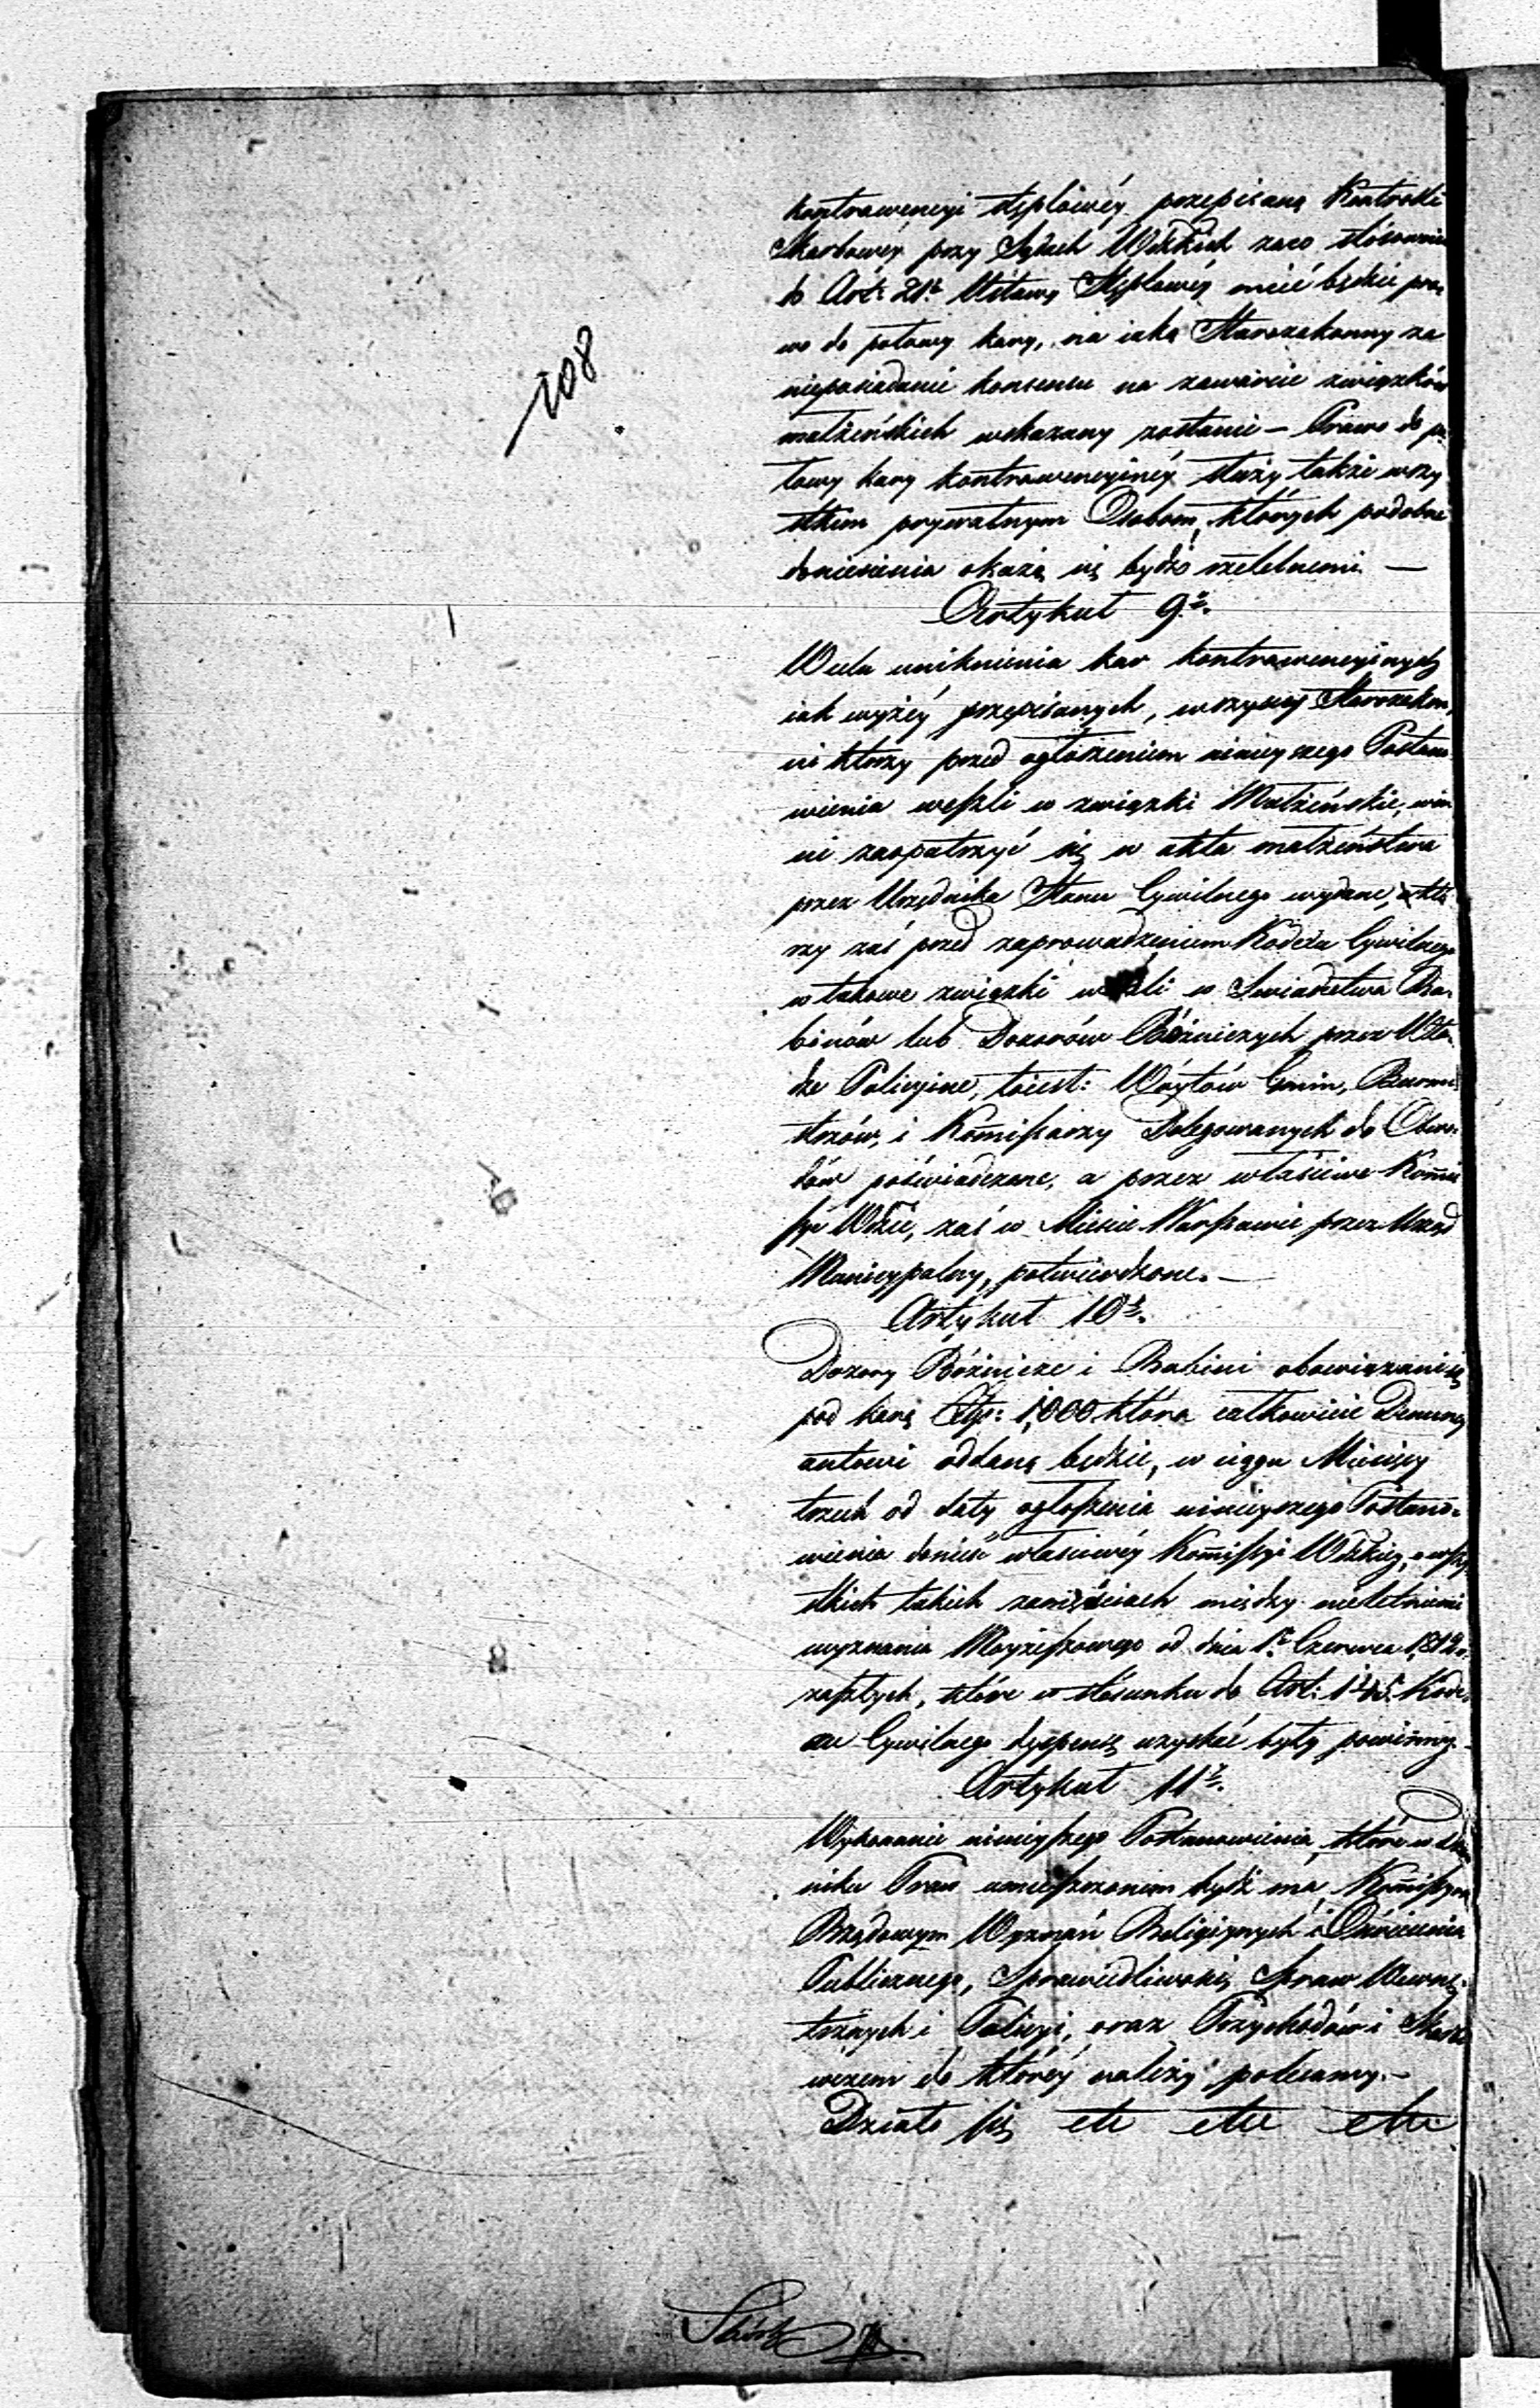 108
kontrawencyi stęplowéy przepisaną Kontrolli
Skarbowéy przy Sądach Wdzkich zaco stósownie
do Art: 21º Ustawy Stęplowéy mieć będzie pra„
wo do połowy kary, na iaką Starozakonny za
nieposiadanie konsensu na zawarcie związków
małżeńskich wskazany zostanie — Prawo do po
łowy kary kontrawencyinéy służy także wszy
stkim prywatnym Osobom, których podobne
doniesienia okażą się bydź rzetelnemi —
Artykuł 9º.
W celu uniknienia kar kontrawencyinych
iak wyżéy przepisanych, wszyscy Starozakon„
ni którzy przed ogłoszeniem ninieyszego Postano
wienia weszli w związki Małżeńskie, win
ni zaopatrzyć się w akta małżeństwa
przez Urzędnika Stanu Cywilnego wydane, któ
rzy zaś przed zaprowadzeniem Kodexu Cywilnego
w takowe związki weszli w Swiadectwa Ra„
binów lub Dozorów Bóżniczych przez Wła„
dze Policyine, toiest: Wóytów Gmin, Burmi
strzów, i Kommissarzy Delegowanych do Obwo„
dów poświadczone, a przez właściwe Kommis
sye Wdzkie, zaś w Mieście Warszawie przez Urząd
Municypalny, potwierdzone. —
Artykuł 10º.
Dozory Bóżnicze i Rabini obowiązani są
pod karą Złp: 1,000 która całkowicie Denuncy
antowi oddaną będzie, w ciągu Miesięcy
trzech od daty ogłoszenia ninieyszego Postano„
wienia donieść właściwéy Kommissyi Wdzkiey, o wszy
stkich takich zamęściach między nieletniemi
wyznania Moyżeszowego od dnia 1º Czerwca
zaszłych, które w stósunku do Art: 145. Kode
xu Cywilnego dyspensę uzyskać były powinny.
Artykuł 11º.
Wykonanie ninieyszego Postanowienia, które w dzien
niku Praw umieszczonem bydź ma, Kommissyom
Rządowym Wyznań Religiynych i Oświecenia
Publicznego, Sprawiedliwości, Spraw Wewnę„
trznych i Policyi, oraz Przychodów i Skarbu
w czem do któréy należy, polecamy. —
Działo się etc etc etc